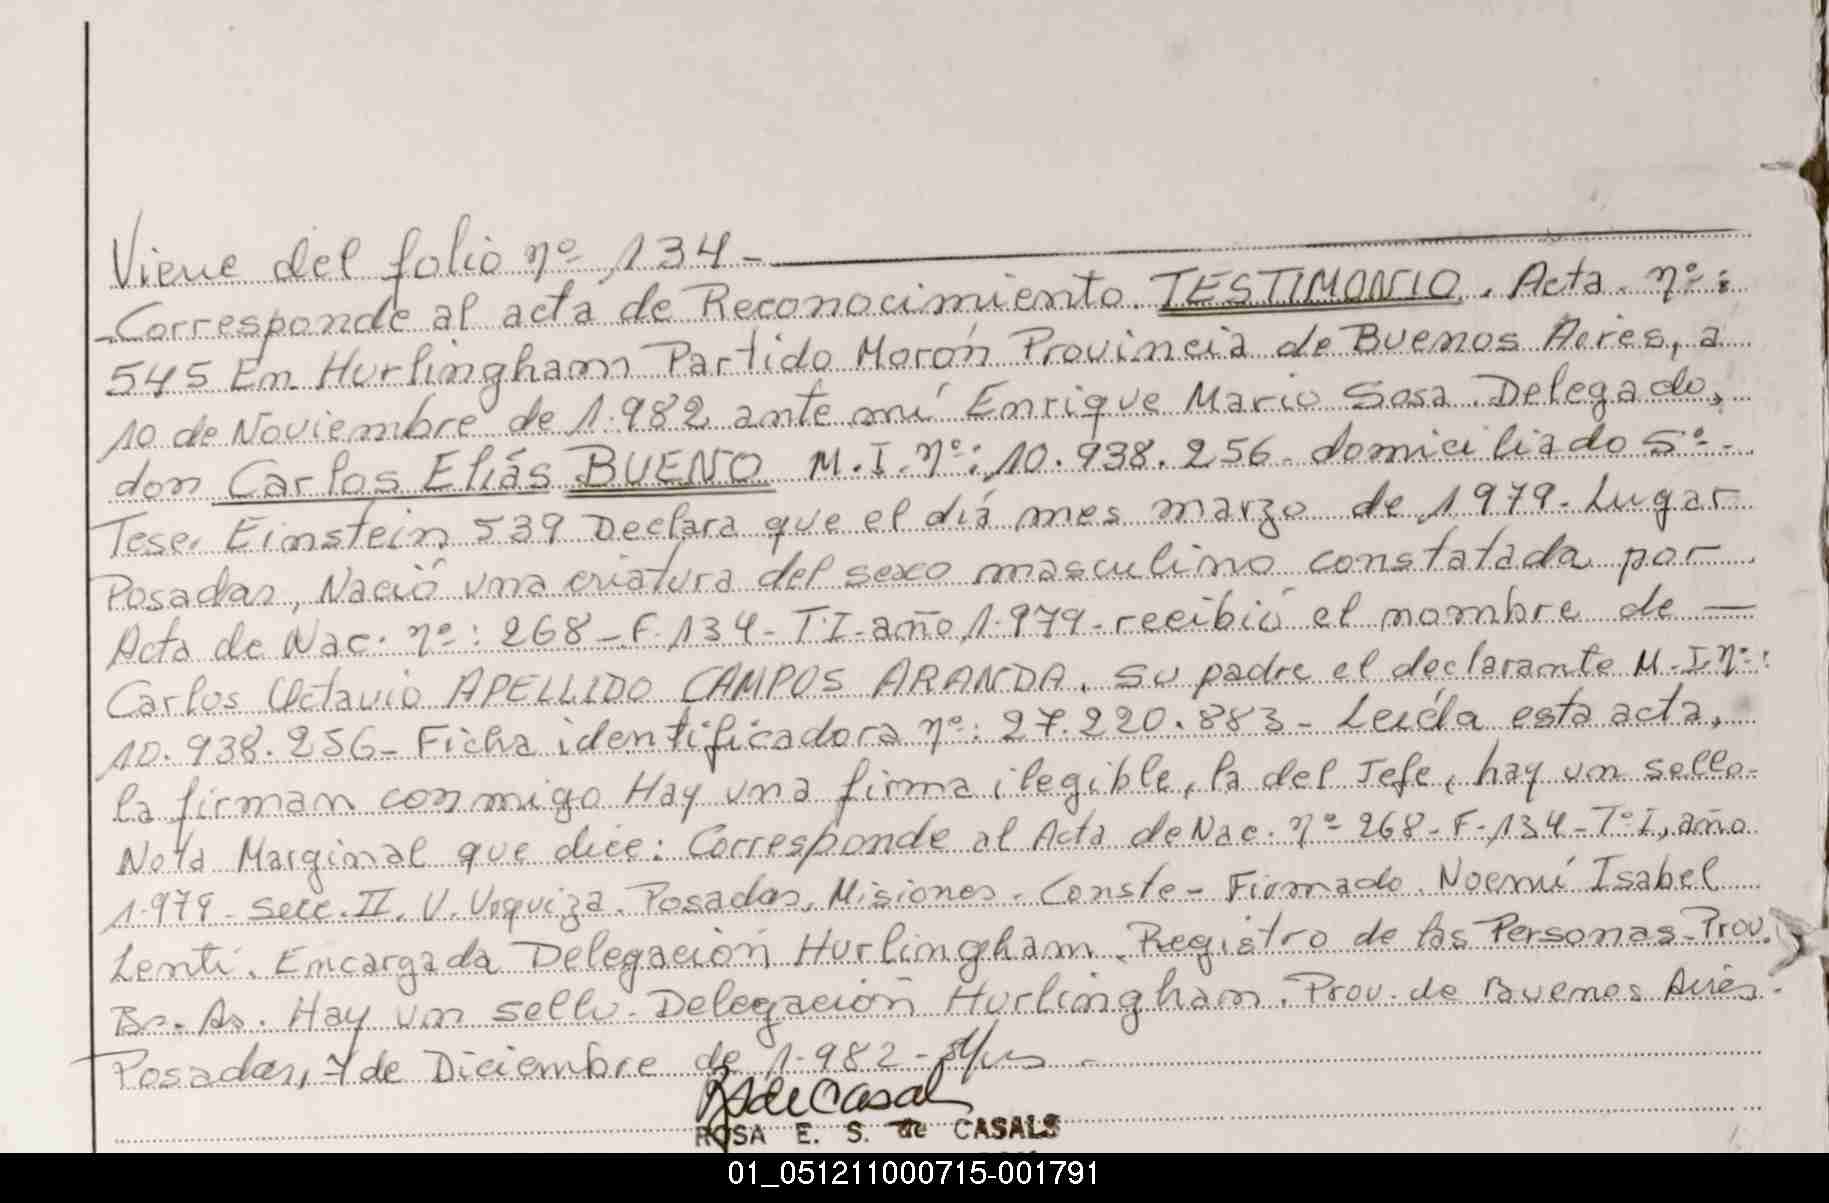 Viene del folio nº 134-
-Corresponde al acta de Reconocimiento. TESTIMONIO. Acta. nº:
545 En Hurlingham Partido Morón Provincia de Buenos Aires, a
10 de Noviembre de 1.982 ante mí Enrique Mario Sosa Delegado,
don Carlos Elías BUENO M.I.nº: 10.938.256- domiciliado 5º-
Tese. Einstein 539 Declara que el día mes marzo de 1979- Lugar
Posadas, Nació una criatura del sexo masculino constatada por
Acta de Nac. nº: 268-F.134-T.I-año 1.979-recibió el nombre de —
Carlos Octavio APELLIDO CAMPOS ARANDA. Su padre el declarante M.I.nº:
10.938.256- Ficha identificadora nº: 27.220.883- Leída esta acta,
la firman conmigo Hay una firma ilegible, la del Jefe, hay un sello-
Nota Marginal que dice: Corresponde al Acta de Nac. nº 268-F-134-TºI, año
1.979- Secc. II. V. Urquiza. Posadas, Misiones. Conste- Firmado. Noemí Isabel
Lenti. Encargada Delegación Hurlingham. Registro de las Personas-Prov.
Bs. As. Hay un sello- Delegación Hurlingham. Prov. de Buenos Aires.
Posadas, 7 de Diciembre de 1.982-
RSdeCasal
ROSA E. S. de CASALS
01_051211000715-001791